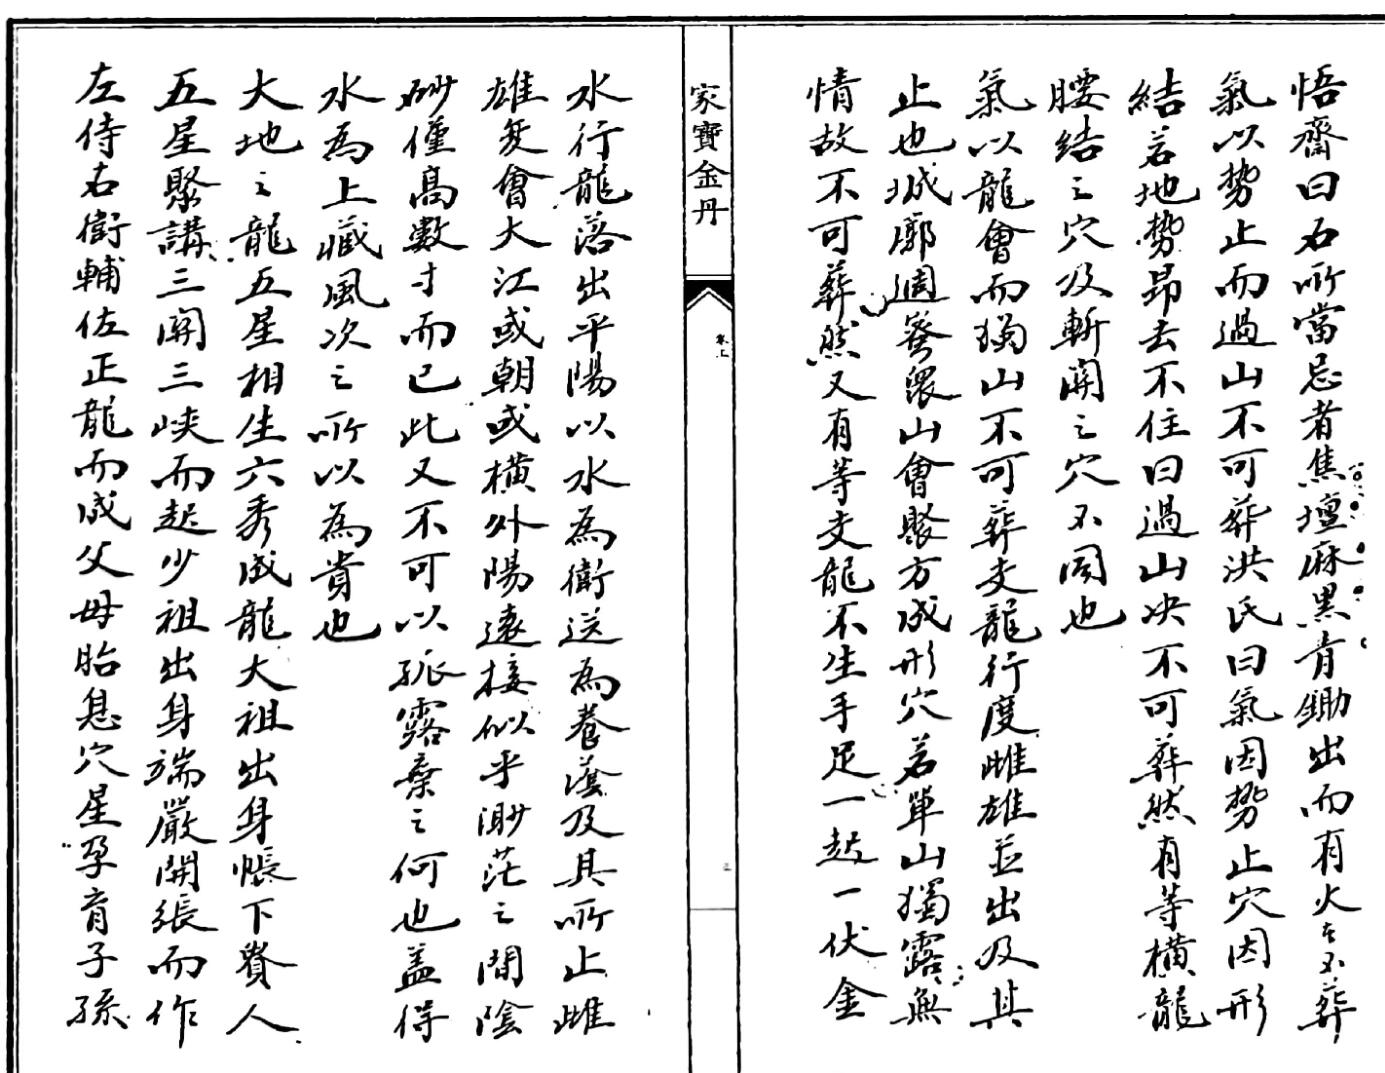 悟齋曰右所當忌者焦壇麻黑青鋤出而有火者不葬
氣以势止而過山不可葬洪氏曰氣因势止穴因形
結若地势昂去不住曰過山决不可葬然有等橫龍
腰結之穴及斬關之穴不同也
氣以龍會而獨山不可葬支龍行度雌雄並出及其
止也城廓週密衆山會聚方成形穴若單山獨露無
情故不可葬然又有等支龍不生手足一起一伏金
家寶金丹
卷上
水行龍落出平陽以水為衛送為養蔭及其所止雌
雄交會大江或朝或橫外陽遠接似乎渺茫之間陰
砂僅高數寸而已此又不可以孤露棄之何也盖得
水為上藏風次之所以為貴也
大地之龍五星相生六秀成龍大祖出身帳下貴人
五星聚講三關三峽而起少祖出身端嚴開張而作
左侍右衛輔佐正龍而成父母胎息穴星孕育子孫